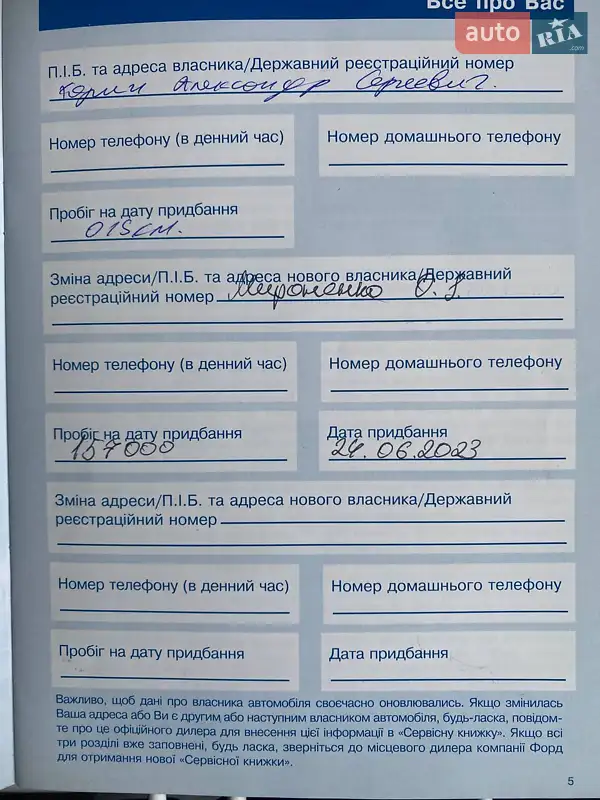 Все про Вас
auto RIA .com
П.І.Б. та адреса власника/Державний реєстраційний номер
Александр Сергеевич.
Номер телефону (в денний час)
Номер домашнього телефону
Пробіг на дату придбання
015км.
Зміна адреси/П.І.Б. та адреса нового власника/Державний
реєстраційний номер Мироненко О.
Номер телефону (в денний час)
Номер домашнього телефону
Пробіг на дату придбання
157000
Дата придбання
24.06.2023
Зміна адреси/П.І.Б. та адреса нового власника/Державний
реєстраційний номер
Номер телефону (в денний час)
Номер домашнього телефону
Пробіг на дату придбання
Дата придбання
Важливо, щоб дані про власника автомобіля своєчасно оновлювались. Якщо змінилась
Ваша адреса або Ви є другим або наступним власником автомобіля, будь-ласка, повідом-
те про це офіційного дилера для внесення цієї інформації в «Сервісну книжку». Якщо всі
три розділи вже заповнені, будь ласка, зверніться до місцевого дилера компанії Форд
для отримання нової «Сервісної книжки».
5